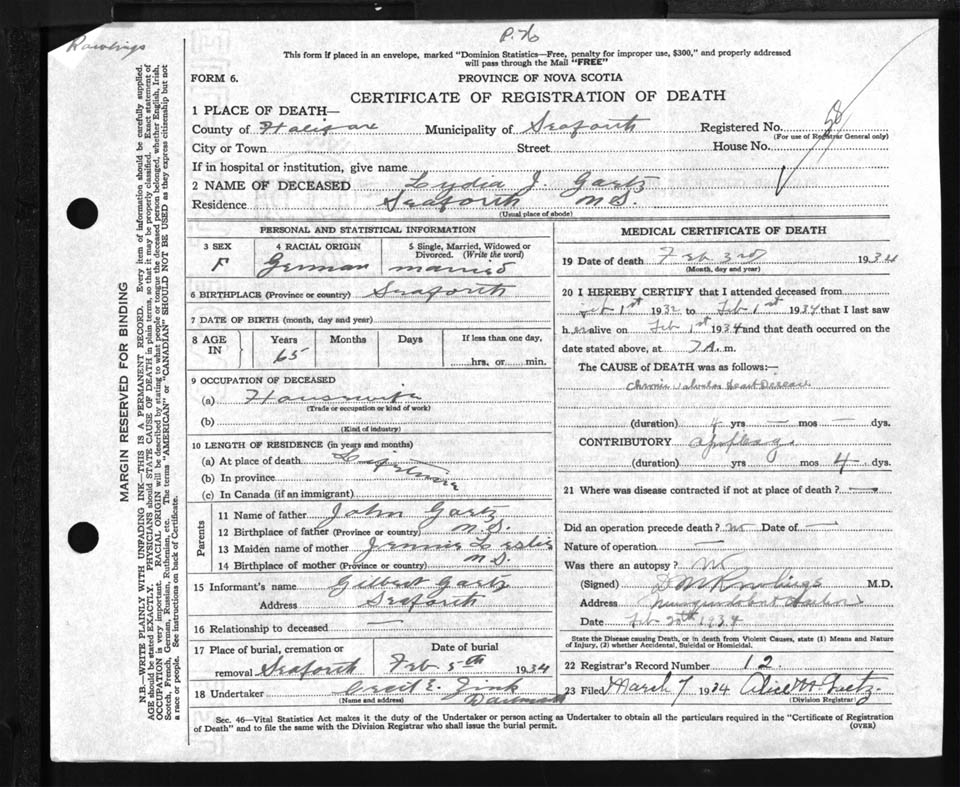 Rawlings
P. 76
This form if placed in an envelope, marked "Dominion Statistics—Free, penalty for improper use, $300," and properly addressed
will pass through the Mail "FREE"
FORM 6.
PROVINCE OF NOVA SCOTIA
CERTIFICATE OF REGISTRATION OF DEATH
1 PLACE OF DEATH—
County of Halifax Municipality of Seaforth Registered No.
(For use of Registrar General only)
City or Town Street House No.
If in hospital or institution, give name
2 NAME OF DECEASED Lydia J. Gaetz
Residence Seaforth N.S.
(Usual place of abode)
PERSONAL AND STATISTICAL INFORMATION
3 SEX F
4 RACIAL ORIGIN German
5 Single, Married, Widowed or Divorced. (Write the word) married
6 BIRTHPLACE (Province or country) Seaforth
7 DATE OF BIRTH (month, day and year)
8 AGE IN Years 65 Months Days If less than one day, hrs. or min.
9 OCCUPATION OF DECEASED
(a) Housewife
(Trade or occupation or kind of work)
(b)
(Kind of industry)
10 LENGTH OF RESIDENCE (in years and months)
(a) At place of death Lifetime
(b) In province
(c) In Canada (if an immigrant)
Parents
11 Name of father John Gaetz
12 Birthplace of father (Province or country) N.S.
13 Maiden name of mother Jennie Leslie
14 Birthplace of mother (Province or country) N.S.
15 Informant's name Gilbert Gaetz
Address Seaforth
16 Relationship to deceased —
17 Place of burial, cremation or removal Seaforth
Date of burial Feb 5th 1934
18 Undertaker Cecil E. Zink
(Name and address)
MEDICAL CERTIFICATE OF DEATH
19 Date of death Feb 3rd 1934
(Month, day and year)
20 I HEREBY CERTIFY that I attended deceased from
Feb 1st 1932 to Feb 1st 1934 that I last saw
h er alive on Feb 1st 1934 and that death occurred on
date stated above, at 7 A. m.
The CAUSE OF DEATH was as follows:—
Chronic Valvular Heart Disease
(duration) 4 yrs — mos — dys.
CONTRIBUTORY apoplexy
(duration) yrs mos 4 dys.
21 Where was disease contracted if not at place of death?
Did an operation precede death? no Date of —
Nature of operation —
Was there an autopsy? no
(Signed) Rowlings M.D.
Address Musquodoboit Harbor
Date Feb 20th 1934
State the Disease causing Death, or in death from Violent Causes, state (1) Means and Nature of Injury, (2) whether Accidental, Suicidal or Homicidal.
22 Registrar's Record Number 12
23 Filed March 7 1934 Alice M Gaetz
(Division Registrar)
Sec. 46—Vital Statistics Act makes it the duty of the Undertaker or person acting as Undertaker to obtain all the particulars required in the "Certificate of Registration
of Death" and to file the same with the Division Registrar who shall issue the burial permit.
(OVER)
MARGIN RESERVED FOR BINDING
N.B.—WRITE PLAINLY WITH UNFADING INK—THIS IS A PERMANENT RECORD. Every item of information should be carefully supplied.
AGE should be stated EXACTLY. PHYSICIANS should STATE CAUSE OF DEATH in plain terms, so that it may be properly classified. Exact statement of
OCCUPATION is very important. RACIAL ORIGIN will be described by stating to what people or tongue the deceased person belonged, whether English, Irish,
Scotch, French, German, Russian, Ruthenian, etc. The terms "AMERICAN" or "CANADIAN" SHOULD NOT BE USED as they express citizenship but not
a race or people. See instructions on back of Certificate.